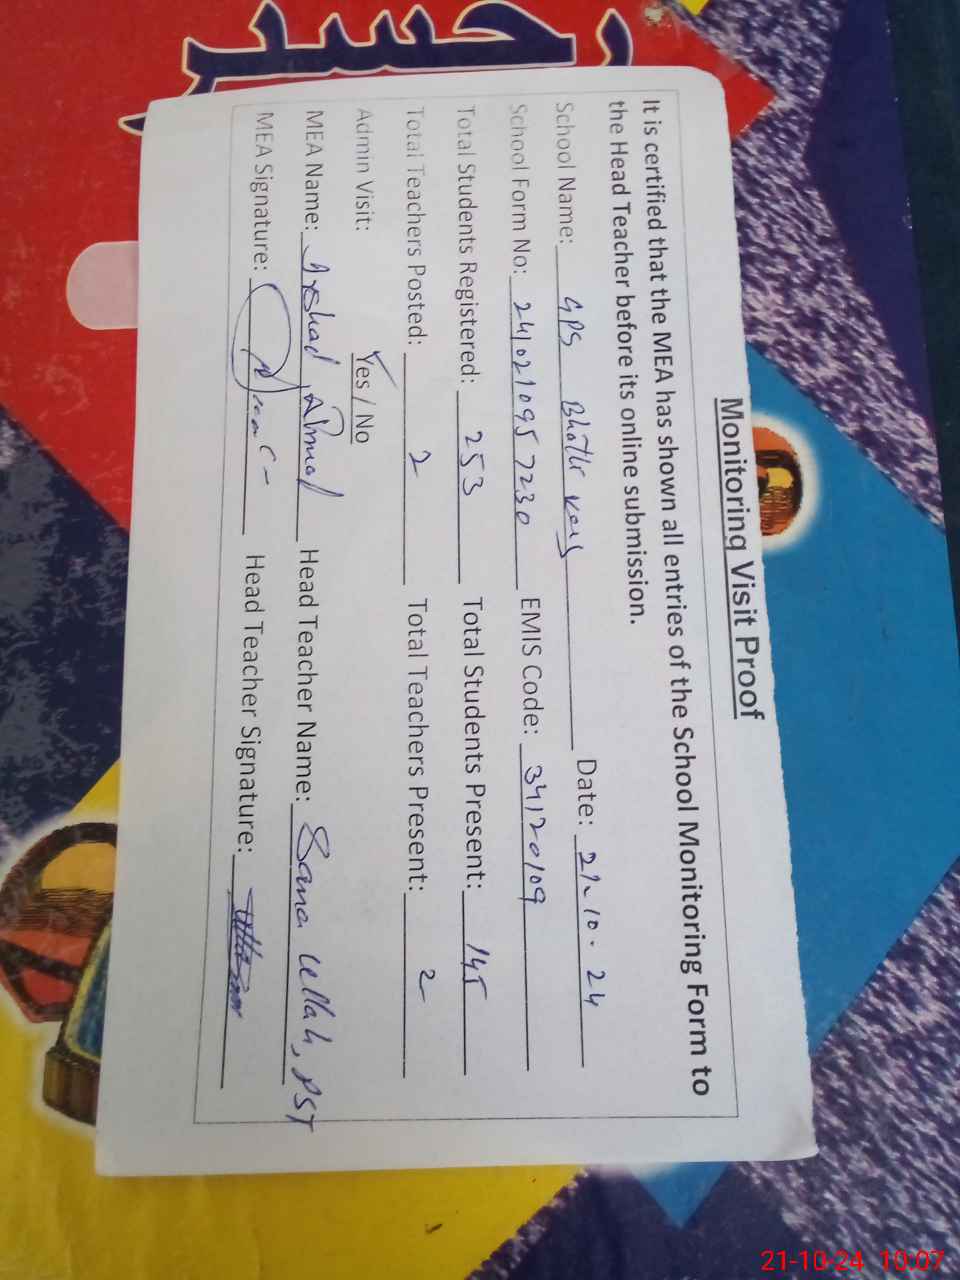 حسیر
Monitoring Visit Proof
It is certified that the MEA has shown all entries of the School Monitoring Form to
the Head Teacher before its online submission.
School Name: GPS Date: 21-10-24
School Form No: 2410210957230 EMIS Code: 34120109
Total Students Registered: 253 Total Students Present: 145
Total Teachers Posted: 2 Total Teachers Present: 2
Admin Visit: Yes / No
MEA Name: Irshad Ahmad Head Teacher Name: Sana Ullah, PST
MEA Signature: Head Teacher Signature:
21-10-24 10:07